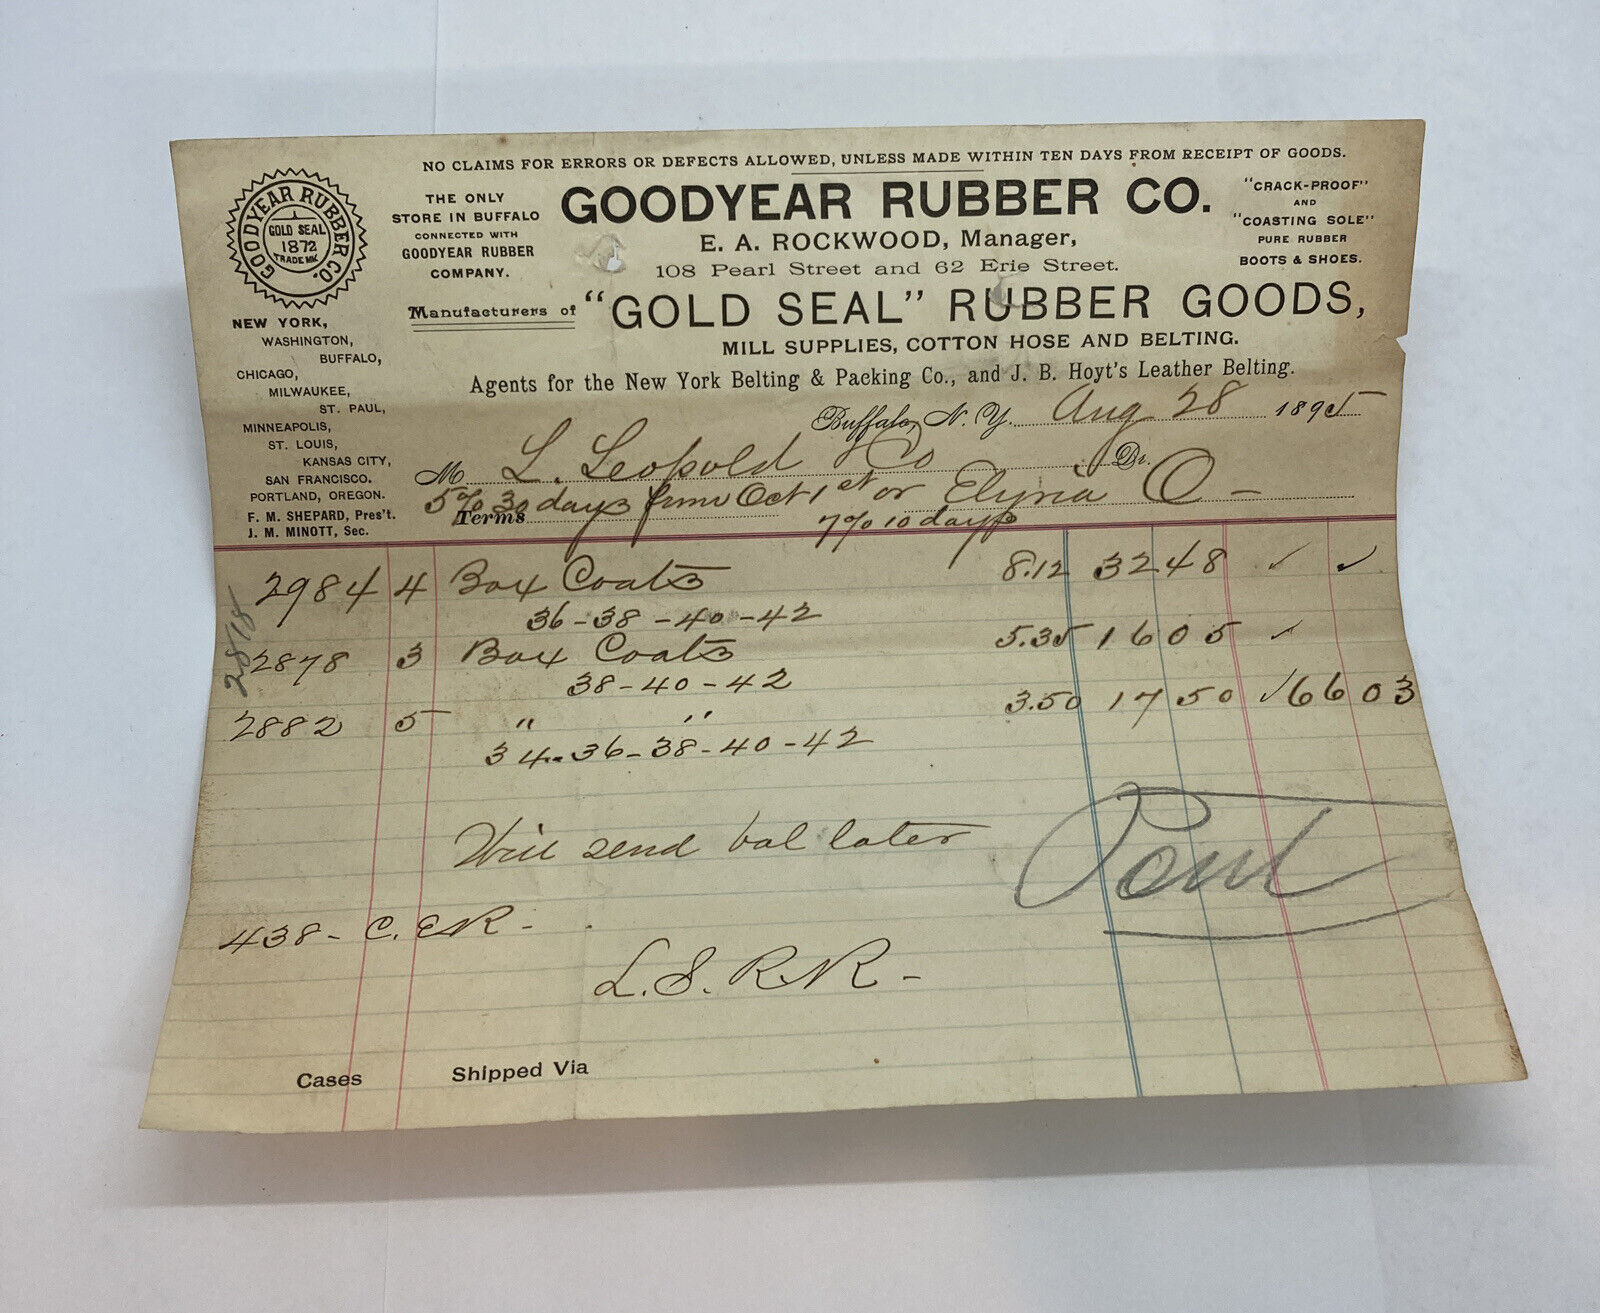 NO CLAIMS FOR ERRORS OR DEFECTS ALLOWED, UNLESS MADE WITHIN TEN DAYS FROM RECEIPT OF GOODS.
GOODYEAR RUBBER CO.
GOLD SEAL
1872
TRADE MK.
THE ONLY
STORE IN BUFFALO
CONNECTED WITH
GOODYEAR RUBBER
COMPANY.
GOODYEAR RUBBER CO.
E. A. ROCKWOOD, Manager,
108 Pearl Street and 62 Erie Street.
"CRACK-PROOF"
AND
"COASTING SOLE"
PURE RUBBER
BOOTS & SHOES.
Manufacturers of "GOLD SEAL" RUBBER GOODS,
MILL SUPPLIES, COTTON HOSE AND BELTING.
Agents for the New York Belting & Packing Co., and J. B. Hoyt's Leather Belting.
NEW YORK,
WASHINGTON,
BUFFALO,
CHICAGO,
MILWAUKEE,
ST. PAUL,
MINNEAPOLIS,
ST. LOUIS,
KANSAS CITY,
SAN FRANCISCO.
PORTLAND, OREGON.
F. M. SHEPARD, Pres't.
J. M. MINOTT, Sec.
Buffalo, N. Y. Aug 28 1895
M L. Leopold & Co Dr.
5% 30 days from Oct 1st or Elyria O -
Terms 7% 10 days
2984 4 Box Coats 8.12 32 48 ✓ ✓
36-38-40-42
2878
2878 3 Box Coats 5.35 16 05 ✓
38-40-42
2882 5 " " 3.50 17 50 ✓ 66 03
34-36-38-40-42
Will send bal later
438- C. E. R. -
L. S. R. R. -
Cases Shipped Via